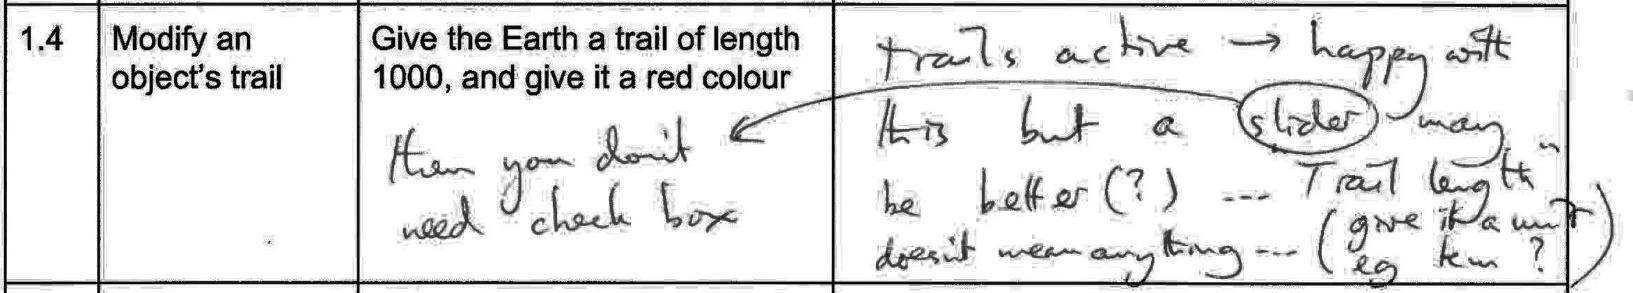 1.4
Modify an
object's trail
Give the Earth a trail of length
1000, and give it a red colour
then you don't
need check box
trails active → happy with
this but a slider may
be better (?) ... "Trail length"
doesn't mean anything ... (give it a unit
eg km ?)